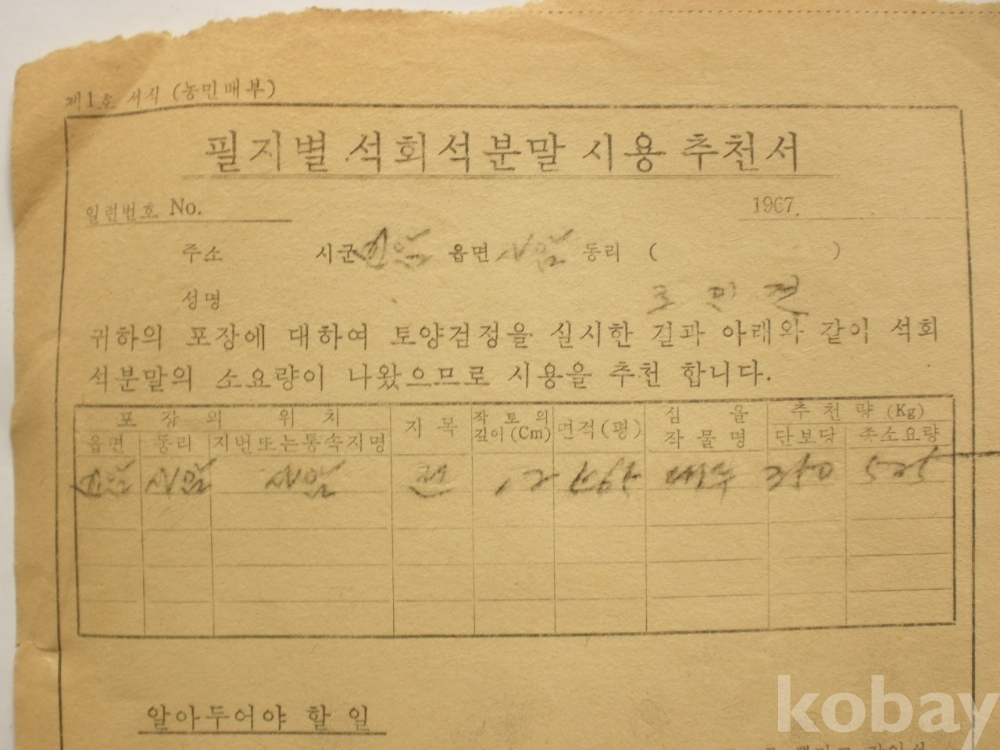 제1호 서식 (농민배부)
필지별 석회석분말 시용 추천서
일련번호 No.
1967.
주소 시군 읍면 사암 동리 ( )
성명
귀하의 포장에 대하여 토양검정을 실시한 결과 아래와 같이 석회
석분말의 소요량이 나왔으므로 시용을 추천 합니다.
포장의 위치 지목 작토의 깊이(Cm) 면적(평) 심을 작물명 추천량(Kg)
읍면 동리 지번또는통속지명 단보당 총소요량
사암 사암 12 525
알아두어야 할 일
kobay